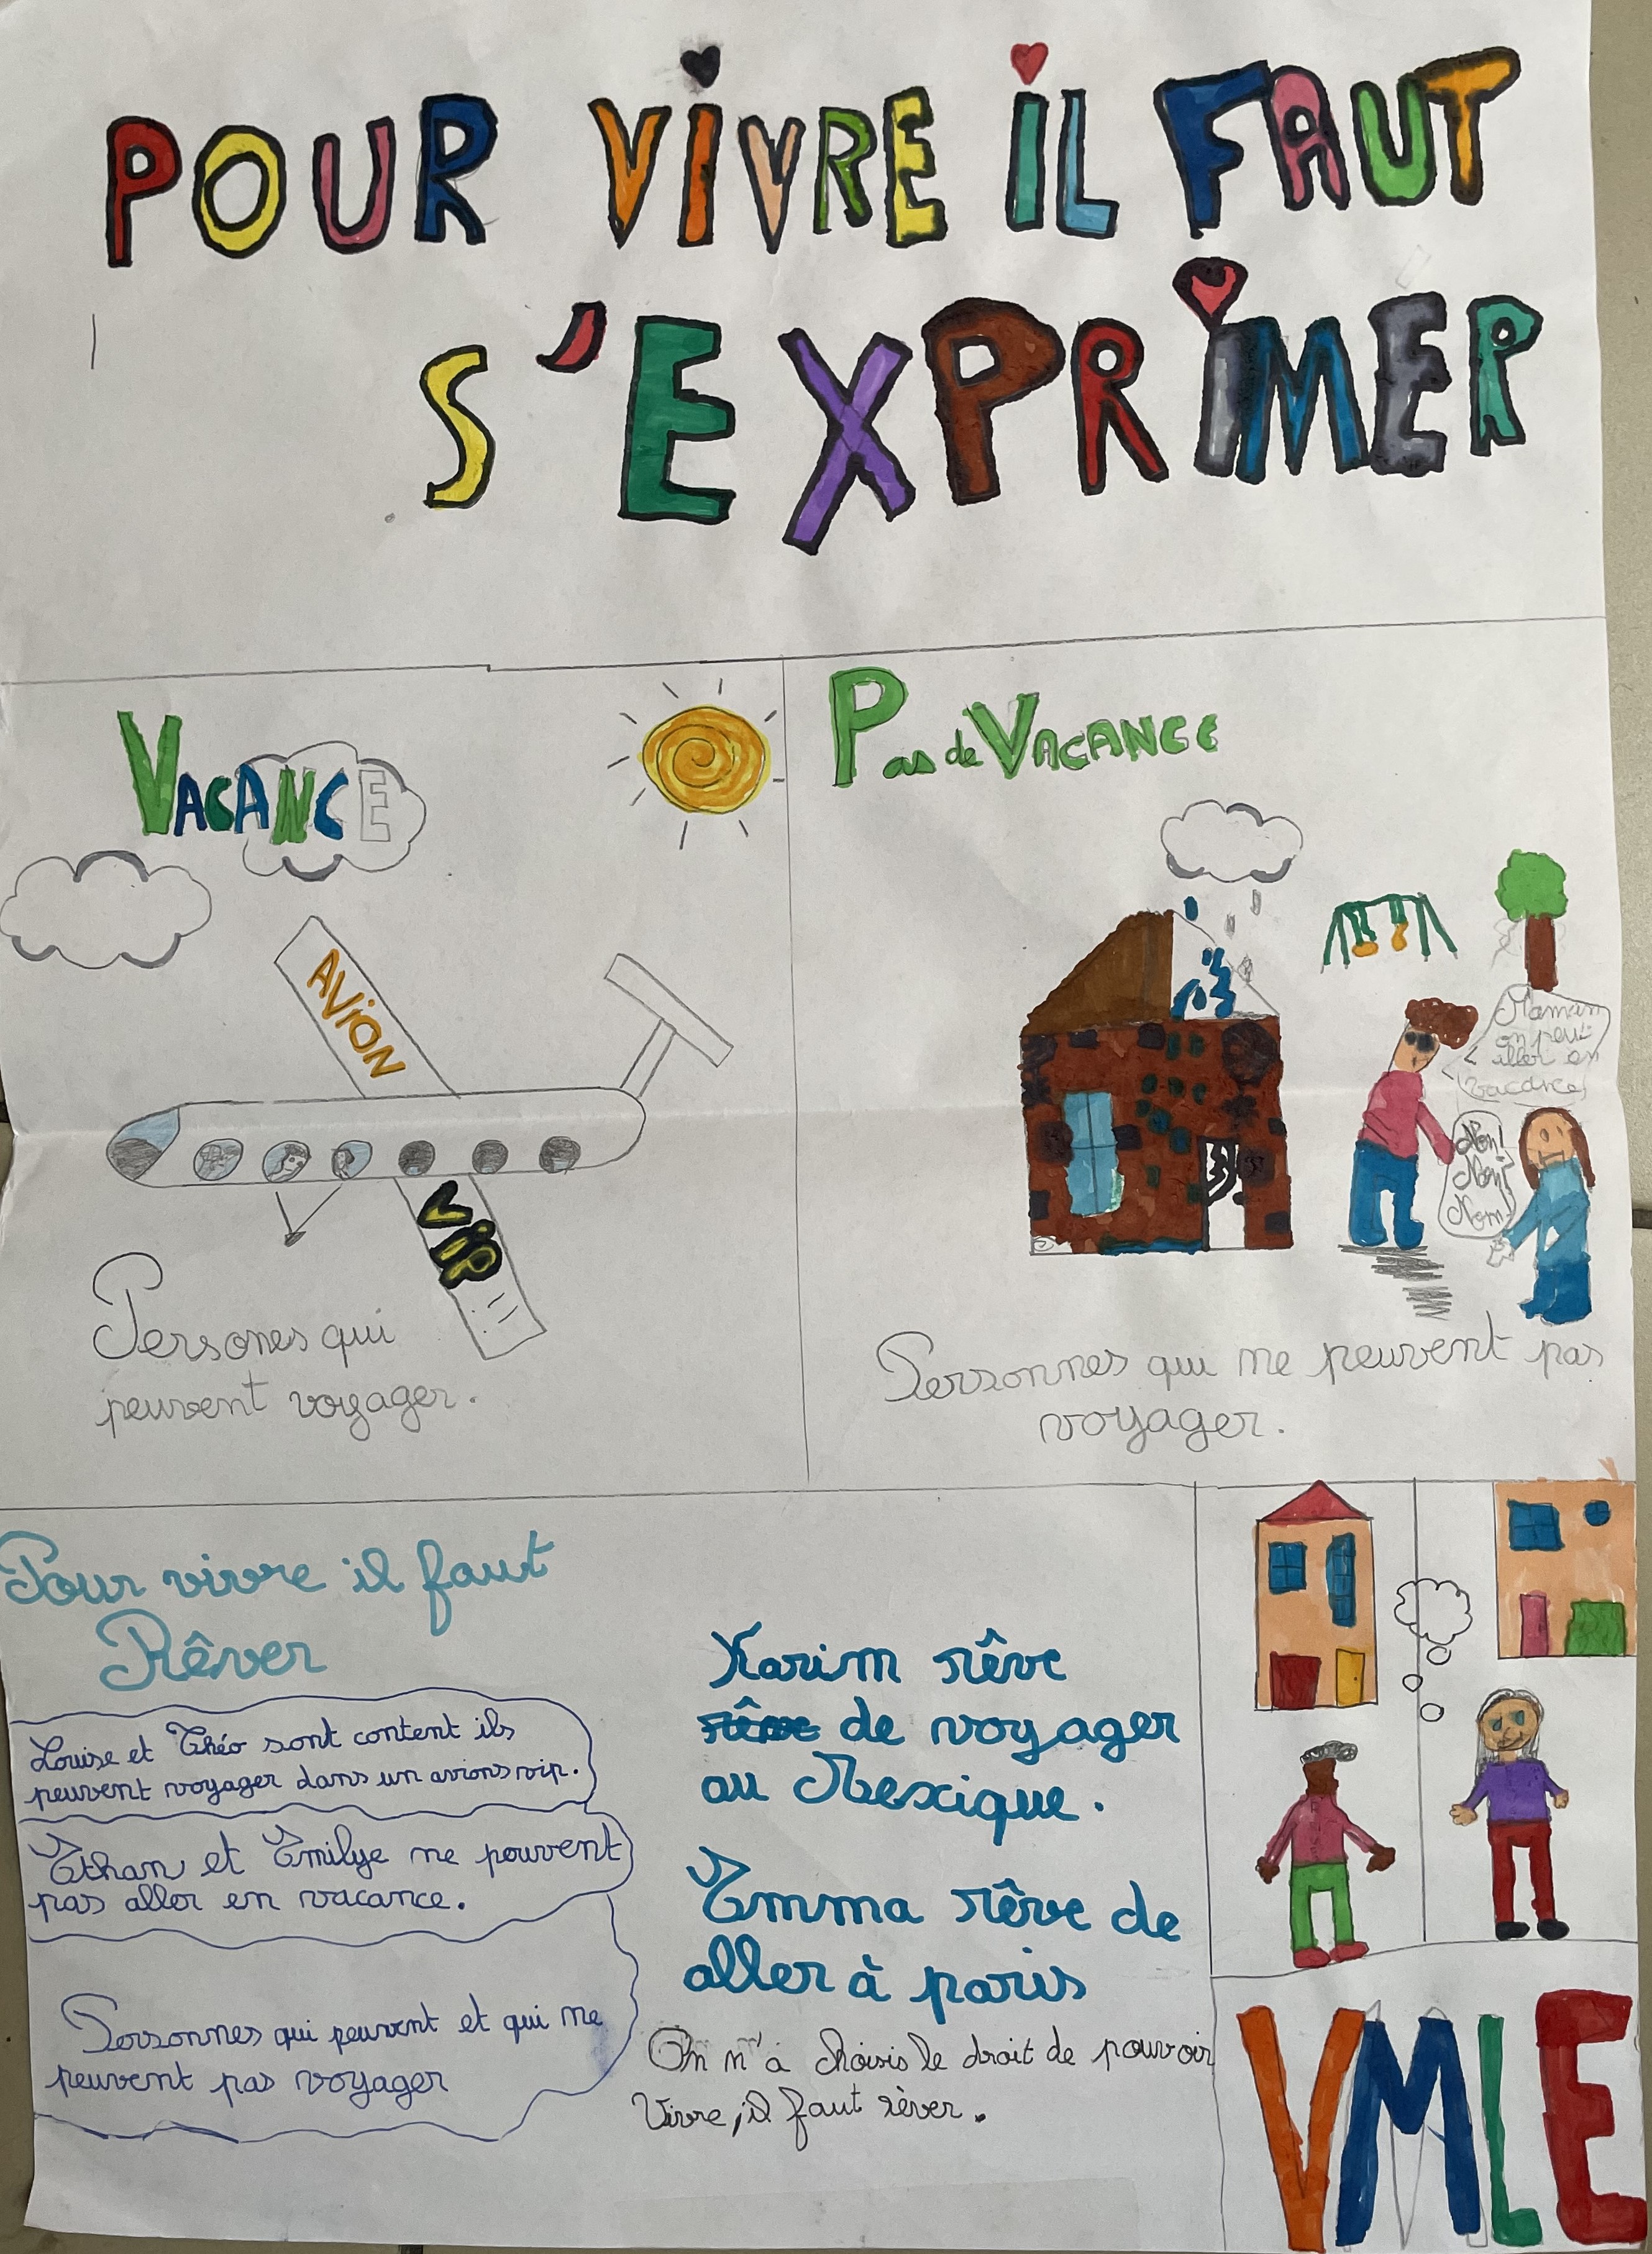 POUR VIVRE IL FAUT
S'EXPRIMER
VACANCE
AVION
VIP
Persones qui
peuvent voyager.
Pas de VACANCE
Maman
on peut
aller en
vacance
Non!
Non!
Non!
Personnes qui ne peuvent pas
voyager.
Pour vivre il faut
Rêver
Louise et Théo sont content ils
peuvent voyager dans un avions vip.
Ethan et Emilye ne peuvent
pas aller en vacance.
Personnes qui peuvent et qui ne
peuvent pas voyager
Karim rêve
de voyager
au Mexique.
Emma rêve de
aller à paris
On n'a choisis le droit de pouvoir
Vivre, il faut rêver.
VMLE